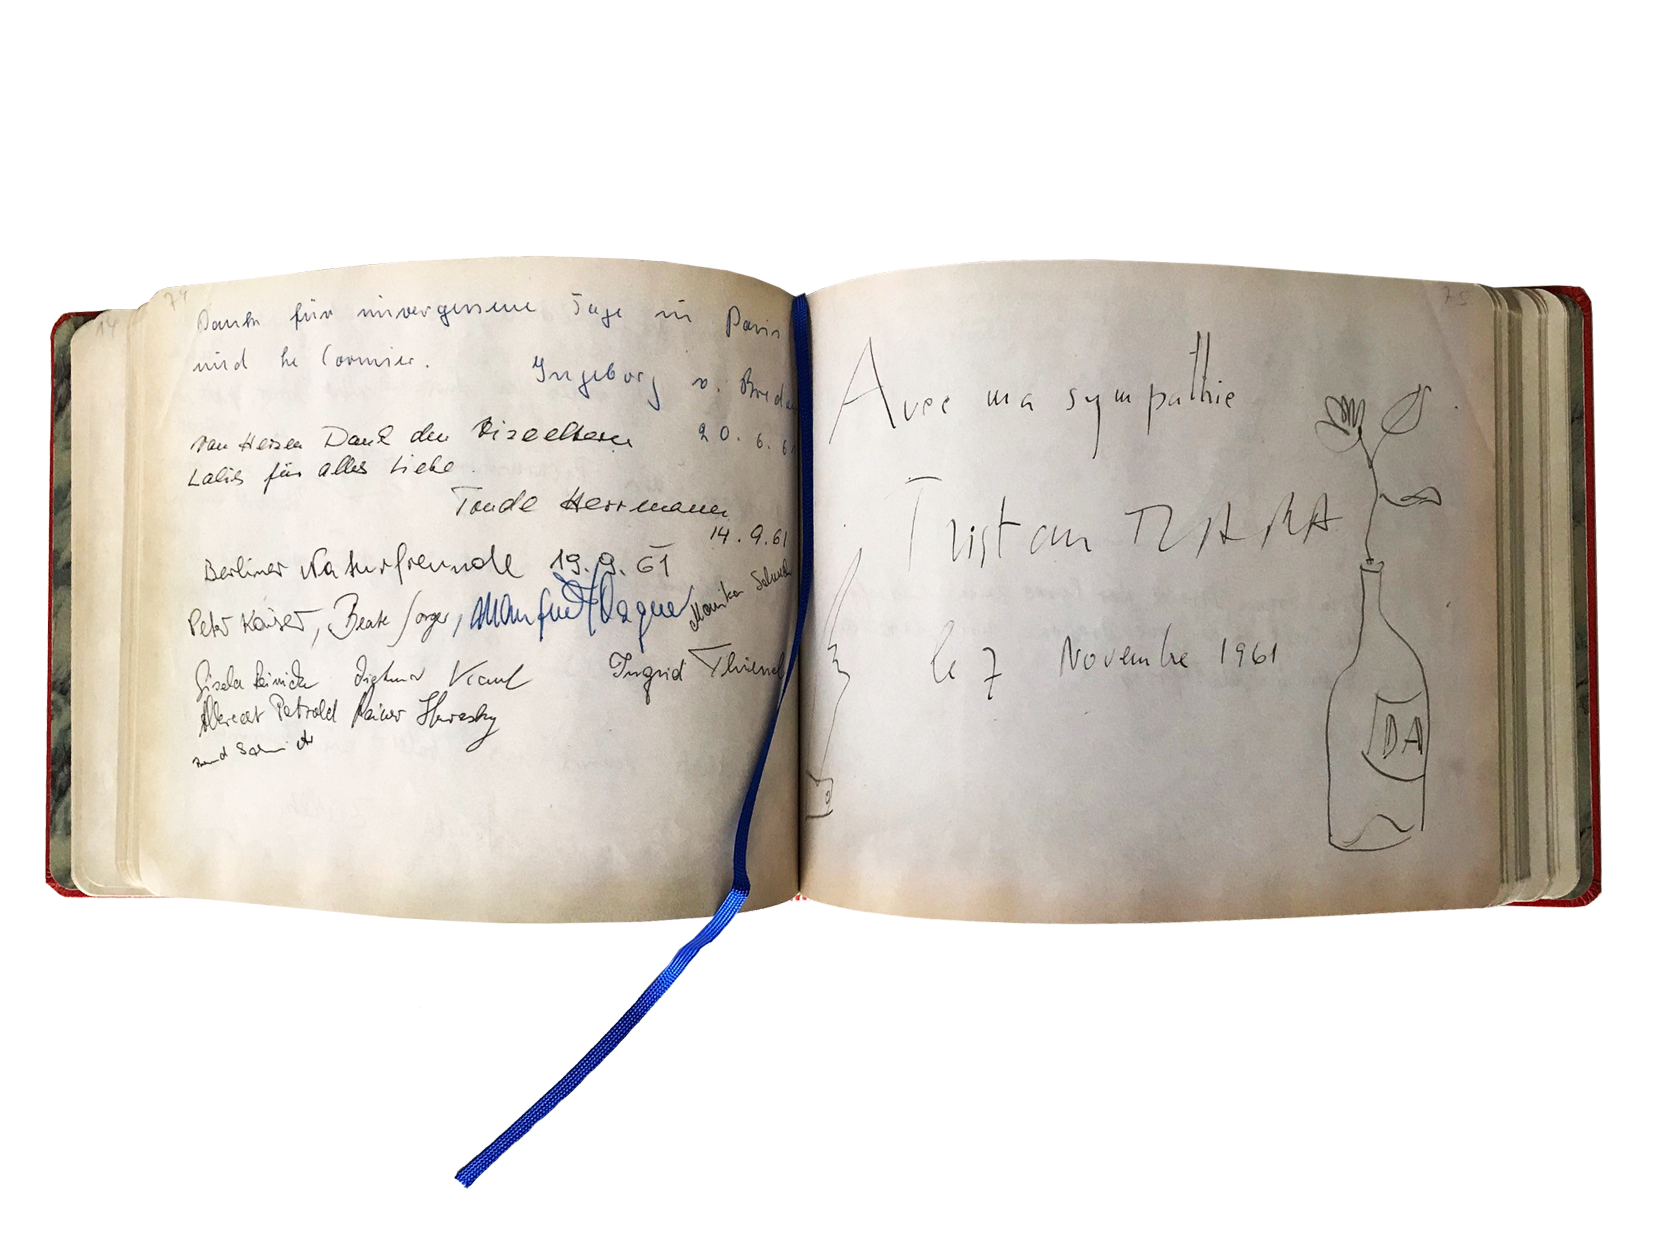 74
Dank für unvergessene Tage in Paris
und Le Cormier.
Ingeborg v. Breda
20.6.61
Von Herzen Dank den
für alles Liebe.
Herrmann
14.9.61
Berliner Naturfreunde 19.9.61
Peter Kaiser, Beate Sorger, Manfred Wagner
Monika
Gisela Dietmar Ingrid
Albrecht Petzold Rainer
14
75
Avec ma sympathie
Tristan TZARA
le 7 Novembre 1961
DA